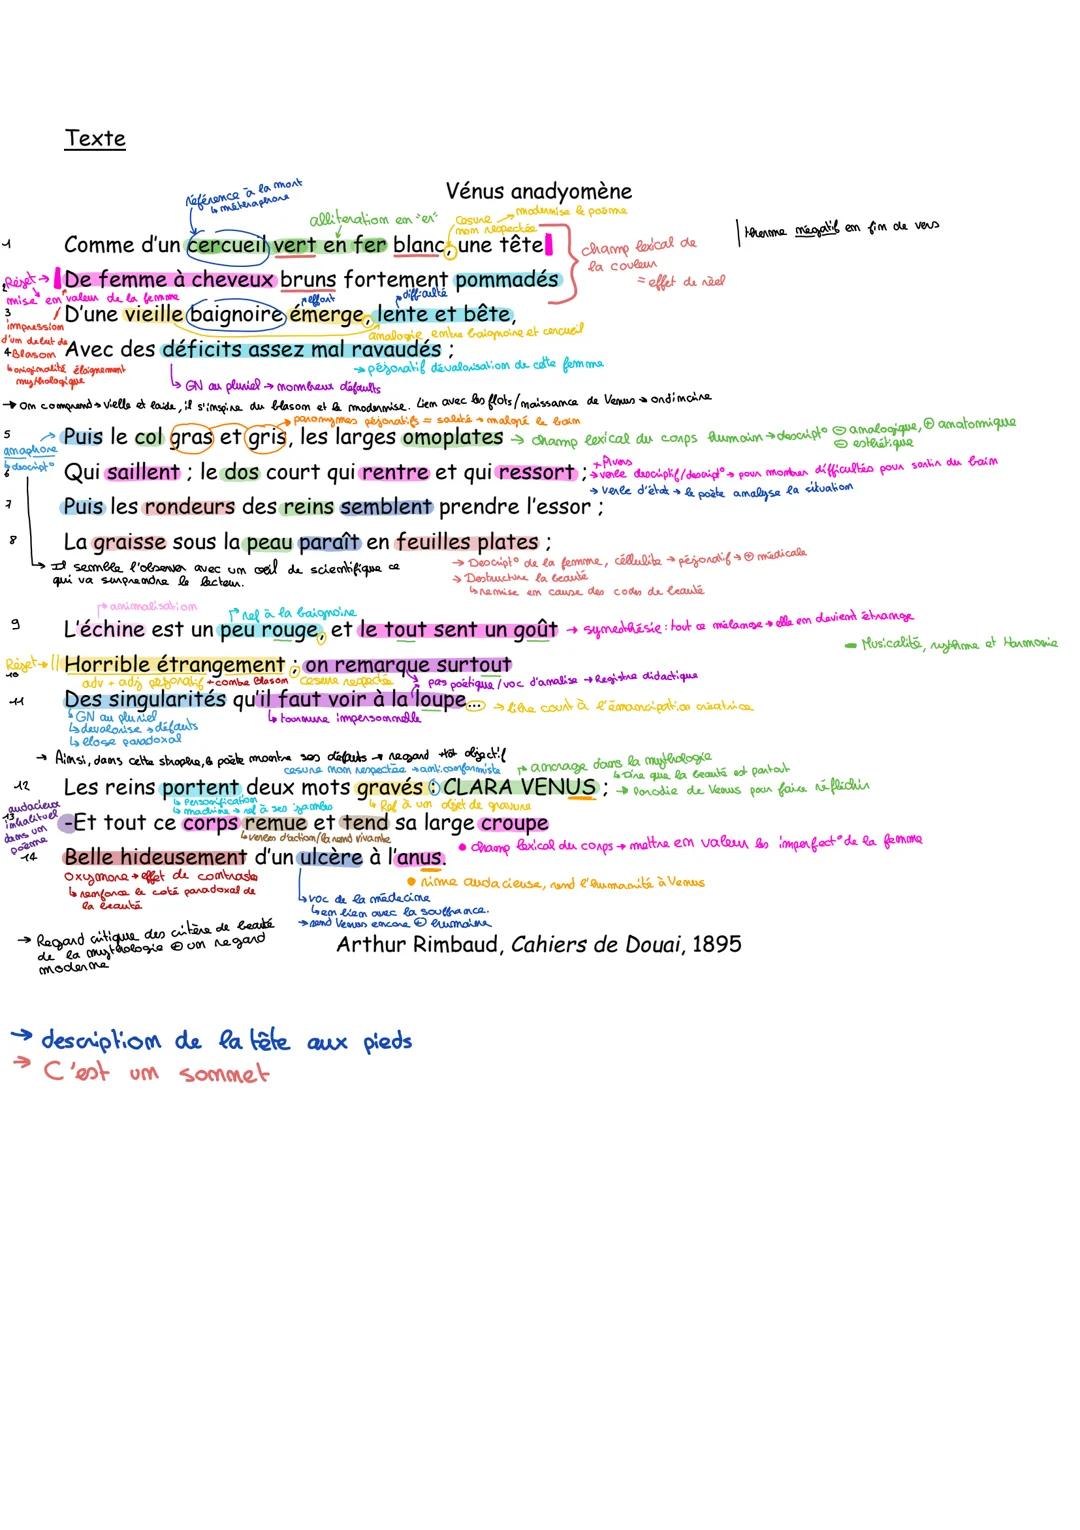 Texte
référence à la mort
↳ métaphore
Vénus anadyomène
alliteration en "er"
césure → modernise le poème
non respectée
1
Comme d'un cercueil vert en fer blanc, une tête
champ lexical de
la couleur
= effet de réel
therme négatif en fin de vers
Rejet →
2
De femme à cheveux bruns fortement pommadés
mise en valeur de la femme
effort
difficulté
3
D'une vieille baignoire émerge, lente et bête,
impression
d'un debut de
Blason
analogie entre baignoire et cercueil
4
Avec des déficits assez mal ravaudés ;
↳ originalité éloignement
mythologique
→ péjoratif dévalorisation de cette femme
↳ GN au pluriel → nombreux défauts
→ On comprend → vielle et laide, il s'inspire du blason et le modernise. Lien avec les flots/naissance de Venus → ordinaire
→ paronymes péjoratifs = saleté → malgré le bain
5
Puis le col gras et gris, les larges omoplates
→ champ lexical du corps humain → descript° ⊖ analogique, ⊕ anatomique
⊖ esthétique
anaphore
↳ descript°
6
Qui saillent ; le dos court qui rentre et qui ressort ;
→ verbe descriptif/descript° → pour montrer difficultés pour sortir du bain
→ verbe d'état → le poète analyse la situation
7
Puis les rondeurs des reins semblent prendre l'essor ;
8
La graisse sous la peau paraît en feuilles plates ;
↳ Il semble l'observer avec un œil de scientifique ce
qui va surprendre le lecteur.
→ Descript° de la femme, cellulite → péjoratif → ⊕ médicale
→ Destructure la beauté
↳ remise en cause des codes de beauté
animalisation
ref à la baignoire
9
L'échine est un peu rouge, et le tout sent un goût
→ synesthésie : tout ce mélange → elle en devient étrange
Musicalité, rythme et Harmonie
Rejet →
10
Horrible étrangement ; on remarque surtout
adv + adj péjoratif + contre Blason
césure respectée
pas poétique / voc d'analise → Registre didactique
11
Des singularités qu'il faut voir à la loupe...
→ libre court à l'émancipation créatrice
↳ GN au pluriel
↳ dévalorise → défauts
↳ éloge paradoxal
↳ tournure impersonnelle
→ Ainsi, dans cette strophe, le poète montre ses défauts → regard tôt objectif
césure non respectée → anti conformiste
ancrage dans la mythologie
↳ Dire que la beauté est partout
12
Les reins portent deux mots gravés : CLARA VENUS ;
→ Parodie de Venus pour faire réfléchir
↳ Personification
↳ machine → ref à ses jambes
↳ Ref à un objet de gravure
audacieux
inhabituel
dans un
poème
13
-Et tout ce corps remue et tend sa large croupe
↳ verbes d'action/la rend vivante
• champ lexical du corps → mettre en valeur les imperfect° de la femme
14
Belle hideusement d'un ulcère à l'anus.
Oxymore → effet de contraste
↳ renforce le coté paradoxal de
la beauté
• rime audacieuse, rend l'humanité à Venus
↳ voc de la médecine
↳ en lien avec la souffrance.
→ rend Venus encore ⊕ humaine
→ Regard critique des critère de beauté
de la mythologie ⊕ un regard
moderne
Arthur Rimbaud, Cahiers de Douai, 1895
→ description de la tête aux pieds
→ C'est un sonnet